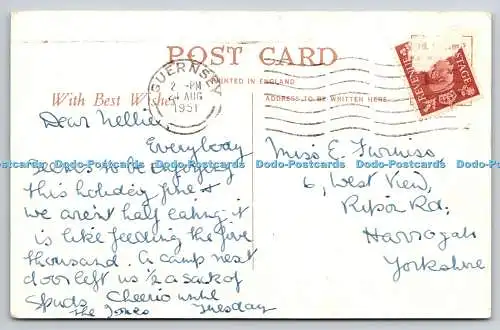 POST CARD
PRINTED IN ENGLAND
With Best Wishes
ADDRESS TO BE WRITTEN HERE
GUERNSEY
2 - PM
AUG
1951
POSTAGE
REVENUE
Dear Nellie,
Everybody
seems to be enjoying
this holiday fine &
we aren't half eating it
is like feeding the five
thousand. A camp next
door left us ½ a sack of
spuds. Cheerio until
Tuesday
The Jones
Miss E.
6, West View,
Ripon Rd.
Harrogate
Yorkshire
Dodo-Postcards Dodo-Postcards Dodo-Postcards Dodo-Postcards Dodo-Postcards